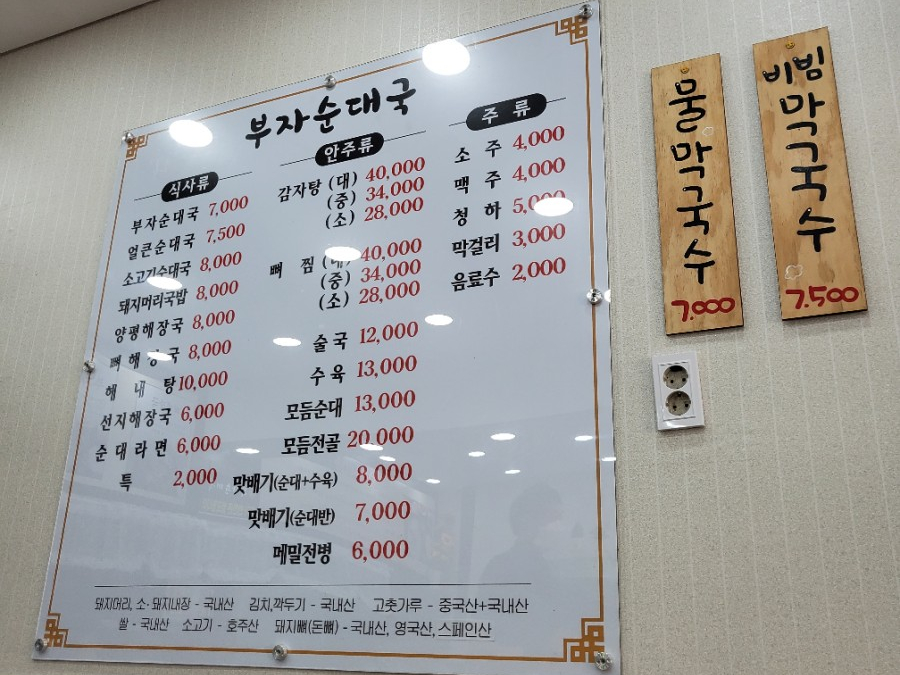 부자순대국
식사류
부자순대국 7,000
얼큰순대국 7,500
소고기순대국 8,000
돼지머리국밥 8,000
양평해장국 8,000
뼈해장국 8,000
해내탕 10,000
선지해장국 6,000
순대라면 6,000
특 2,000
안주류
감자탕 (대) 40,000
(중) 34,000
(소) 28,000
뼈찜 (대) 40,000
(중) 34,000
(소) 28,000
술국 12,000
수육 13,000
모듬순대 13,000
모듬전골 20,000
맛배기(순대+수육) 8,000
맛배기(순대반) 7,000
메밀전병 6,000
주류
소주 4,000
맥주 4,000
청하 5,000
막걸리 3,000
음료수 2,000
돼지머리, 소·돼지내장 - 국내산 김치,깍두기 - 국내산 고춧가루 - 중국산+국내산
쌀 - 국내산 소고기 - 호주산 돼지뼈(돈뼈) - 국내산, 영국산, 스페인산
물막국수
7.000
비빔막국수
7.500